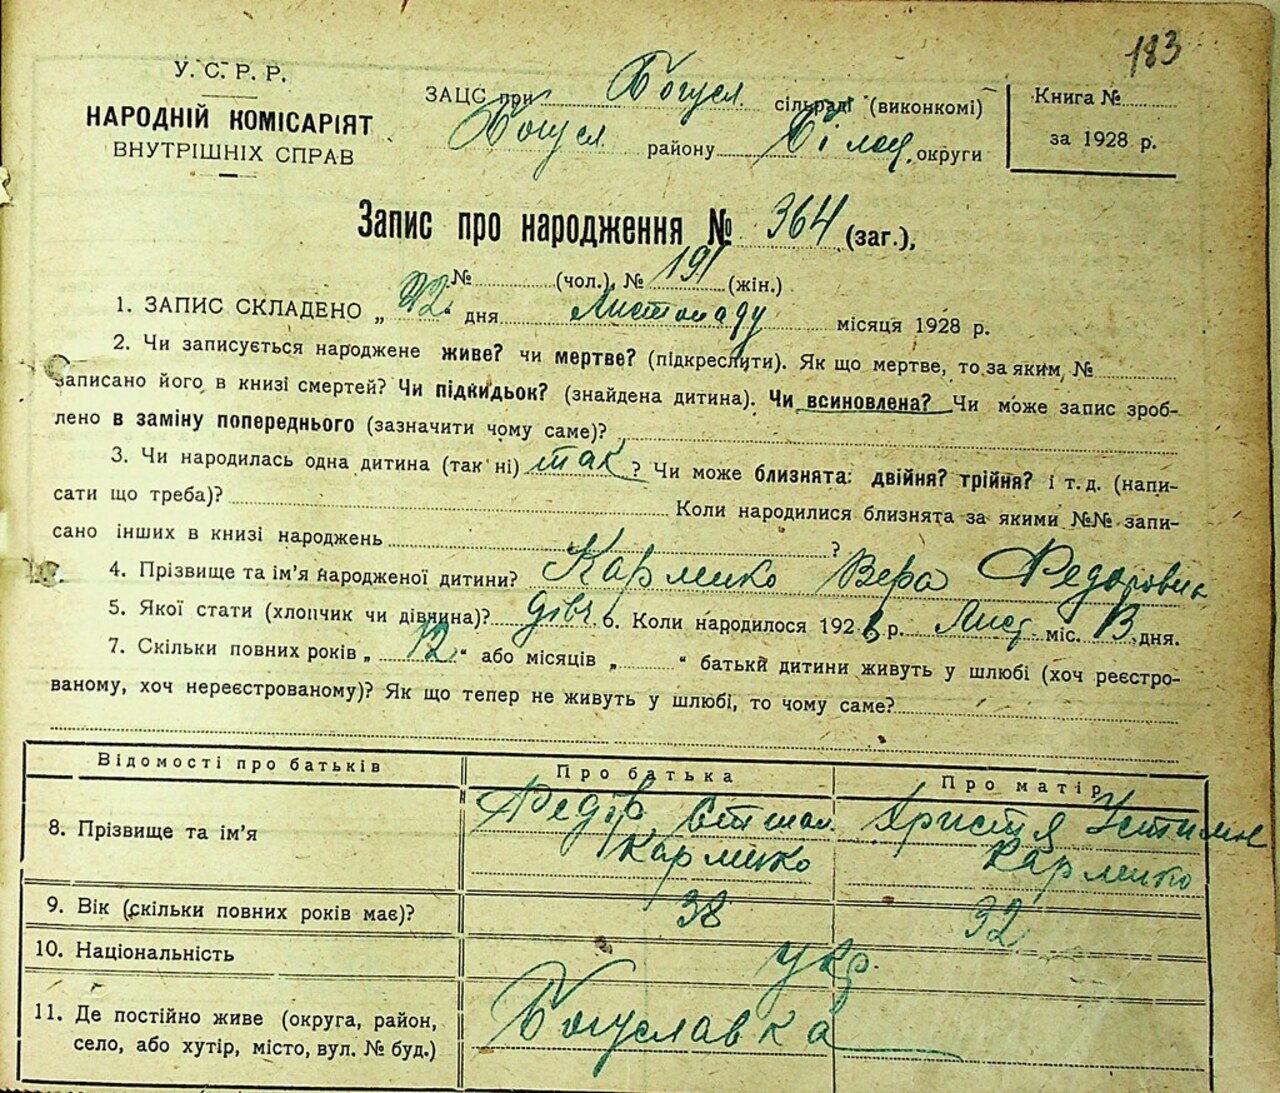 183
У.С.Р.Р.
НАРОДНІЙ КОМІСАРІЯТ
ВНУТРІШНІХ СПРАВ
ЗАЦС при Богусл. сільраді (виконкомі)
Богусл. району Білоц. округи
Книга №
за 1928 р.
Запис про народження № 364 (заг.),
№ (чол.), № 191 (жін.)
1. ЗАПИС СКЛАДЕНО „ " дня Листопаду місяця 1928 р.
2. Чи записується народжене живе? чи мертве? (підкреслити). Як що мертве, то за яким, №
записано його в книзі смертей? Чи підкидьок? (знайдена дитина). Чи всиновлена? Чи може запис зроб-
лено в заміну попереднього (зазначити чому саме)?
3. Чи народилась одна дитина (так ні) так ? Чи може близнята: двійня? трійня? і т.д. (напи-
сати що треба)? Коли народилися близнята за якими №№ запи-
сано інших в книзі народжень ?
4. Прізвище та ім'я народженої дитини? Кармико Вера Федоровна
5. Якої стати (хлопчик чи дівчина)? дівч. 6. Коли народилося 1928 р. Лист. міс. 13 дня.
7. Скільки повних років „ 12 " або місяців „ " батьки дитини живуть у шлюбі (хоч реєстро-
ваному, хоч нереєстрованому)? Як що тепер не живуть у шлюбі, то чому саме?
Відомості про батьків
Про батька
Про матір
8. Прізвище та ім'я
Федір
Кармико
Христя Устимн
Кармико
9. Вік (скільки повних років має)?
38
32
10. Національність
укр.
11. Де постійно живе (округа, район,
село, або хутір, місто, вул. № буд.)
Богуславка